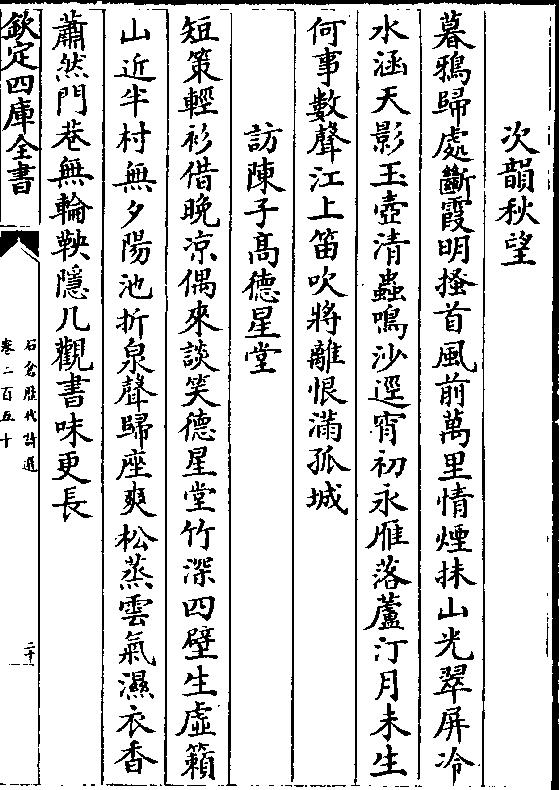 次韻秋望
暮鴉歸處斷霞明搔首風前萬里情煙抹山光翠屏冷
水涵天影玉壺清蟲鳴沙逕宵初永雁落蘆汀月未生
何事數聲江上笛吹將離恨滿孤城
訪陳子髙德星堂
短策輕衫借晚凉偶來談笑德星堂竹深四壁生虛籟
山近半村無夕陽池折泉聲歸座爽松蒸雲氣濕衣香
蕭然門巷無輪鞅隱几觀書味更長
欽定四庫全書
石倉歷代詩選
卷二百五十
二十